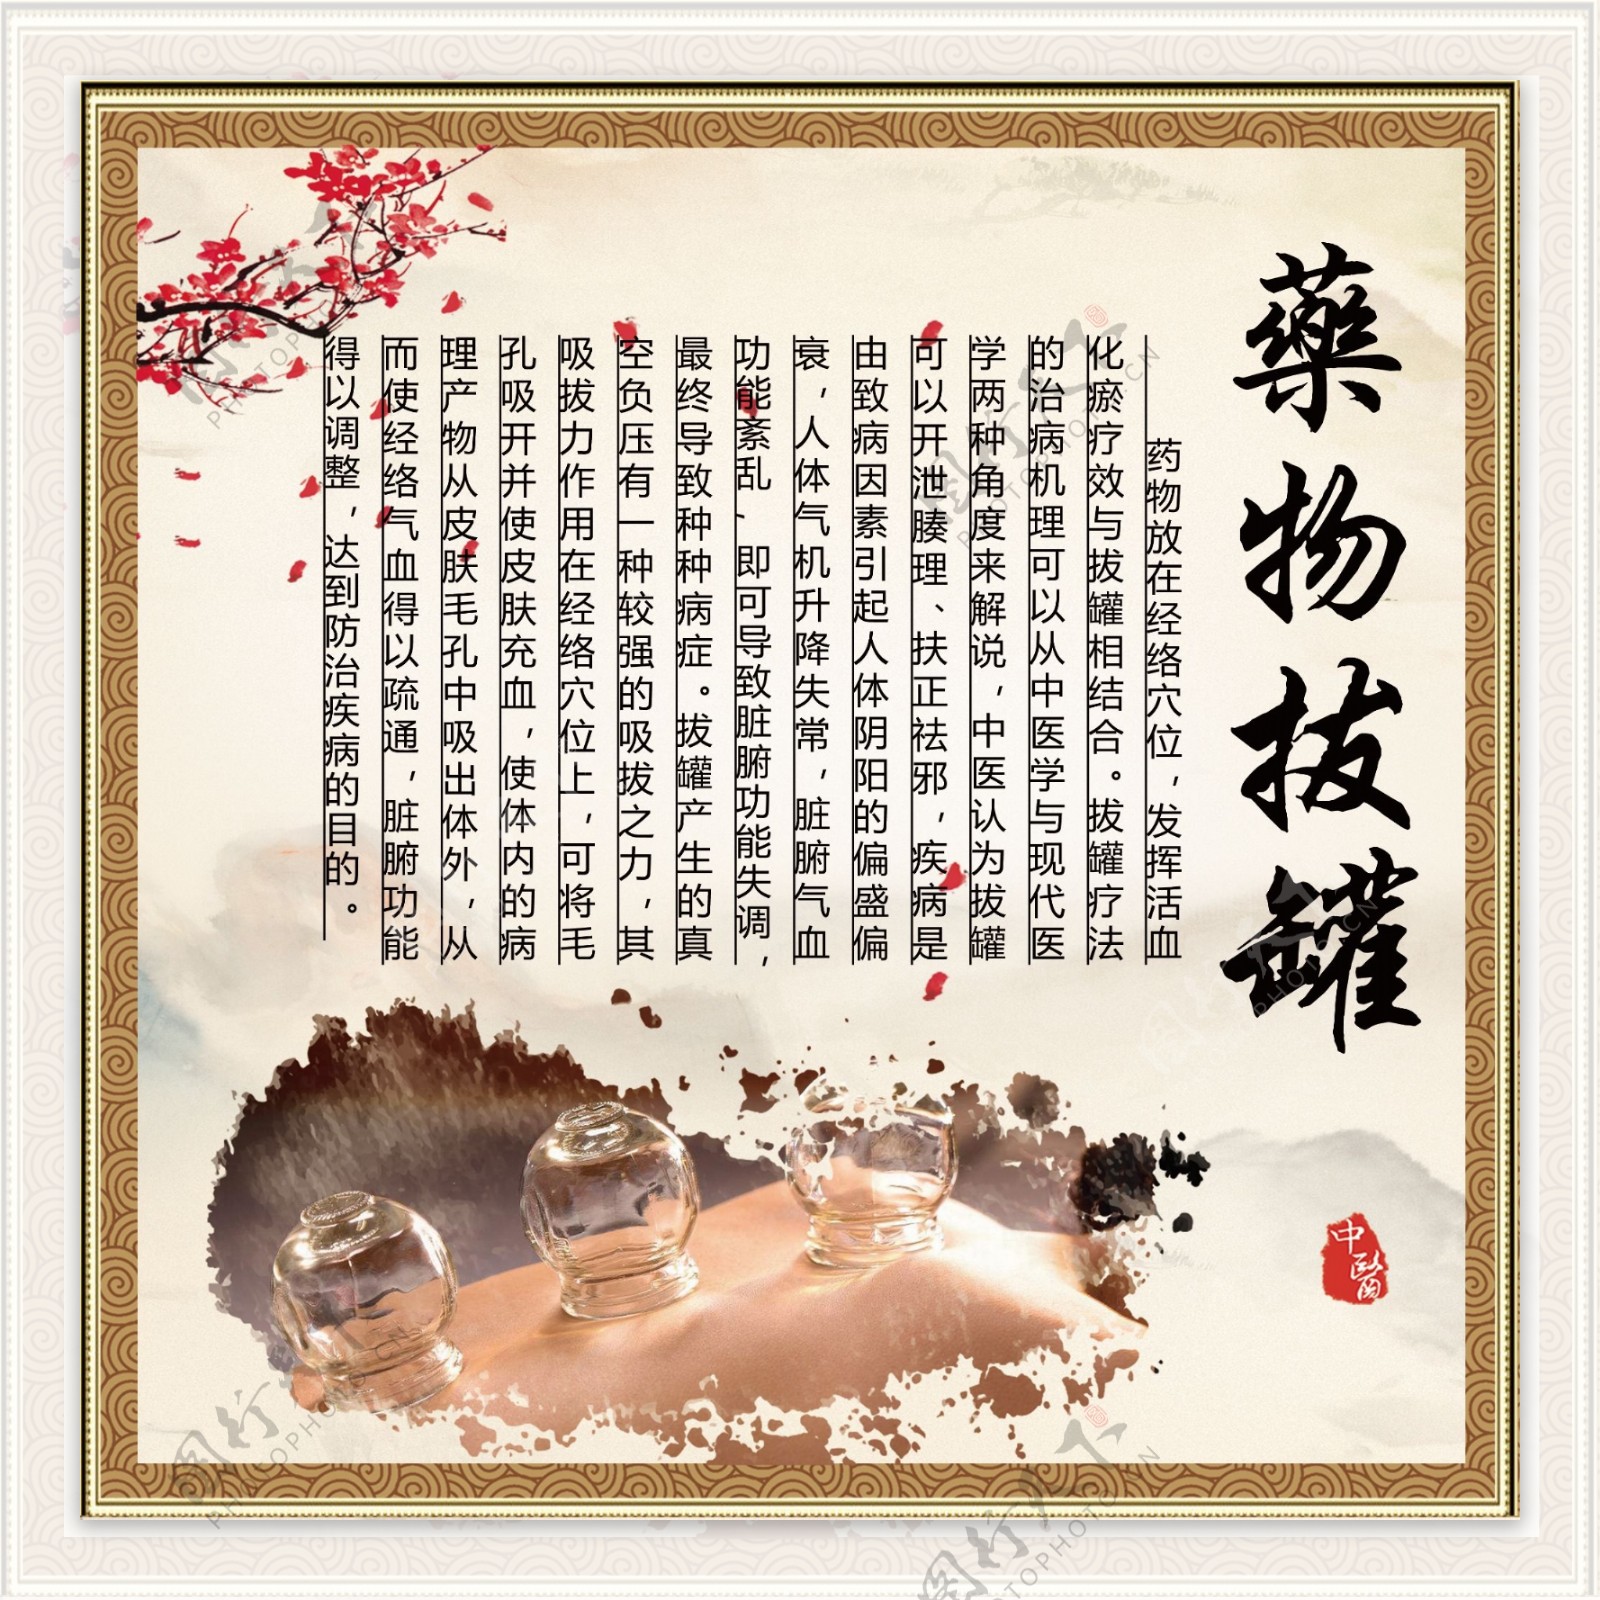 藥物拔罐
药物放在经络穴位，发挥活血
化瘀疗效与拔罐相结合。拔罐疗法
的治病机理可以从中医学与现代医
学两种角度来解说，中医认为拔罐
可以开泄腠理、扶正祛邪，疾病是
由致病因素引起人体阴阳的偏盛偏
衰，人体气机升降失常，脏腑气血
功能紊乱、即可导致脏腑功能失调，
最终导致种种病症。拔罐产生的真
空负压有一种较强的吸拔之力，其
吸拔力作用在经络穴位上，可将毛
孔吸开并使皮肤充血，使体内的病
理产物从皮肤毛孔中吸出体外，从
而使经络气血得以疏通，脏腑功能
得以调整，达到防治疾病的目的。
中醫
图行天下
PHOTOPHOTO.CN